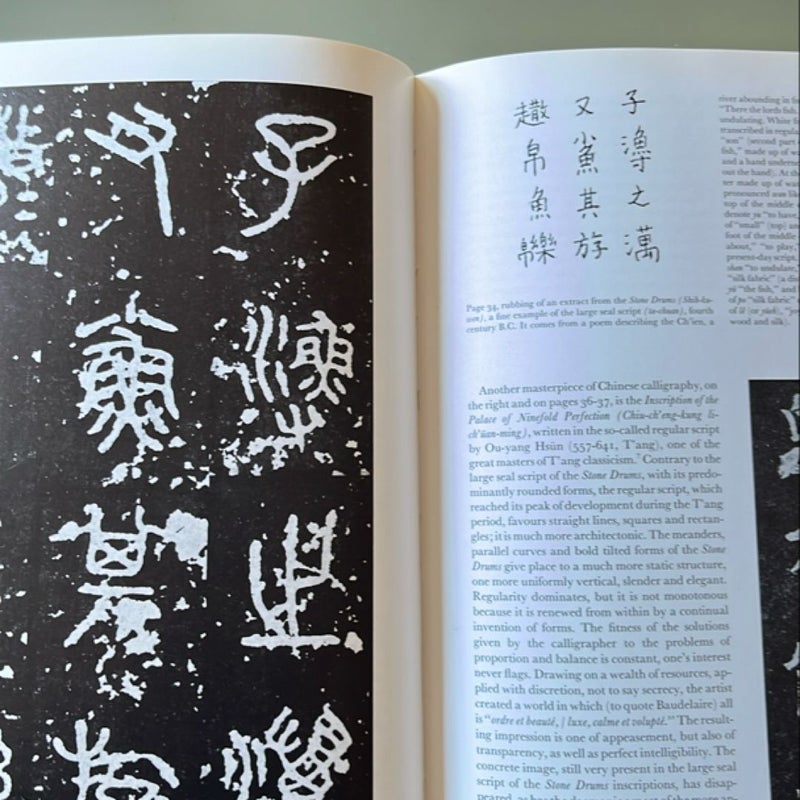 子 之
又 其
子 之 澫
又 其
帛 魚
Page 34, rubbing of an extract from the Stone Drums (Shih-ku-
wen), a fine example of the large seal script (ta-chuan), fourth
century B.C. It comes from a poem describing the Ch'ien, a
river abounding in
"There the lords fish,
undulating. White
transcribed in regular
"son" (second part
fish," made up of
and a hand
out the hand). At the
ter made up of
pronounced
top of the middle
denote yu "to have,
of "small" (top) and
foot of the middle
about," "to play,
present-day script,
"to undulate,
"silk fabric" (a
yü "the fish," and
of "silk fabric"
of
wood and silk).
Another masterpiece of Chinese calligraphy, on
the right and on pages 36-37, is the Inscription of the
Palace of Ninefold Perfection (Chiu-ch'eng-kung li-
ch'üan-ming), written in the so-called regular script
by Ou-yang Hsün (557-641, T'ang), one of the
great masters of T'ang classicism.7 Contrary to the
large seal script of the Stone Drums, with its predo-
minantly rounded forms, the regular script, which
reached its peak of development during the T'ang
period, favours straight lines, squares and rectan-
gles; it is much more architectonic. The meanders,
parallel curves and bold tilted forms of the Stone
Drums give place to a much more static structure,
one more uniformly vertical, slender and elegant.
Regularity dominates, but it is not monotonous
because it is renewed from within by a continual
invention of forms. The fitness of the solutions
given by the calligrapher to the problems of
proportion and balance is constant, one's interest
never flags. Drawing on a wealth of resources, ap-
plied with discretion, not to say secrecy, the artist
created a world in which (to quote Baudelaire) all
is "ordre et beauté, / luxe, calme et volupté." The result-
ing impression is one of appeasement, but also of
transparency, as well as perfect intelligibility. The
concrete image, still very present in the large seal
script of the Stone Drums inscriptions, has disap-
peared, as has the